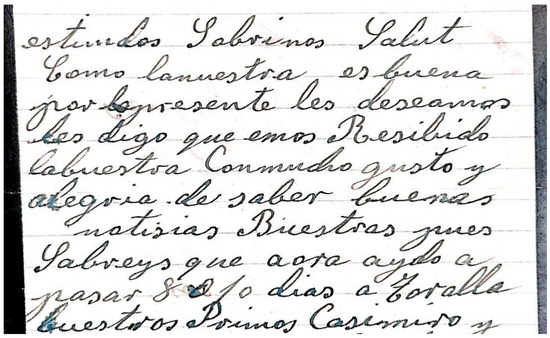 estimdos Sobrinos Salut
Como lanuestra es buena
por lopresente les deseamos
les digo que emos Resibido
labuestra Conmucho gusto y
alegria de saber buenas
notisias Buestras pues
Sabreys que aora aydo a
pasar 8 o 10 dias a Toralla
buestros Primos Casimiro y